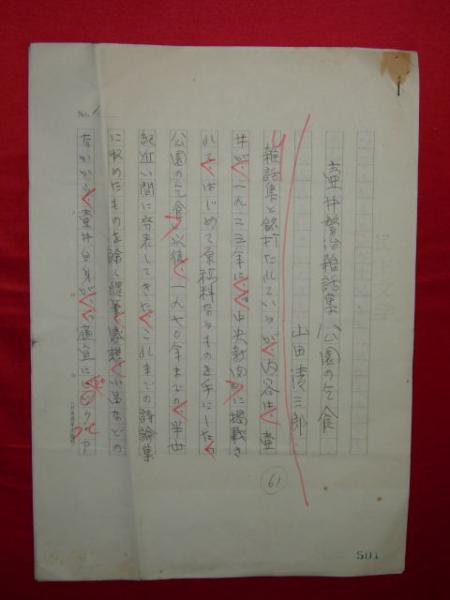 壷井繁治雑話集「公園の乞食」
山田清三郎
雑話集と銘打たれているが、内容は、壷
井が、一九二三年に、中央新聞に掲載さ
れて、はじめて原稿料なるものを手にした「
公園の乞食」以後、一九七〇年までの、半世
紀近い間に発表してきた、これまでの詩論集
に収めたものを除く随筆、感想、小品などの
なかから、壷井自身が、適宜に
61
No. 1
501